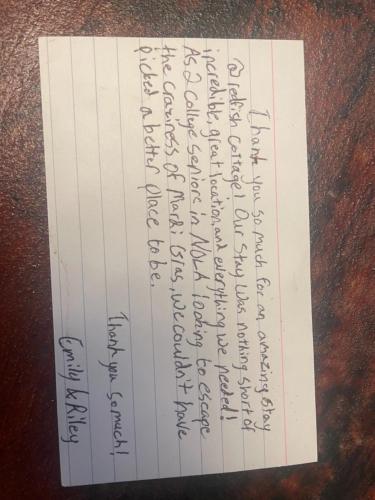 Thank you so much for an amazing stay
@ redfish cottage! Our stay was nothing short of
incredible, great location, and everything we needed!
As 2 college seniors in NOLA looking to escape
the craziness of Mardi Gras, we couldn't have
picked a better place to be.
Thank you so much!
Emily & Riley